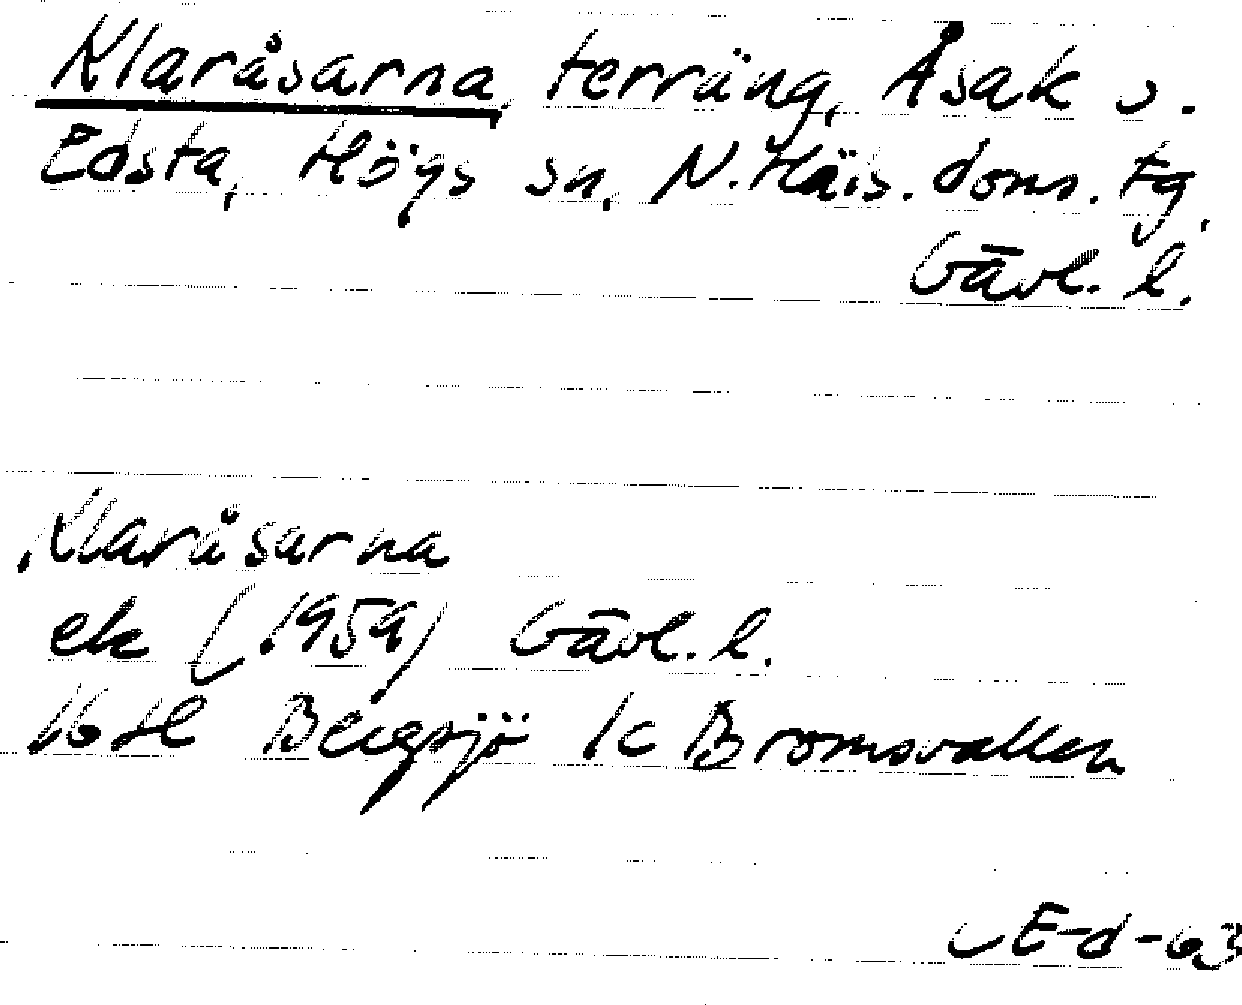 Klaråsarna, terräng, Åsak o.
Edsta, Högs sn, N. Häls. doms. tg,
Gävl. l.
Klaråsarna
ek (1959) Gävl. l.
16 H Bergsjö 1c Bromsvallen
E-d-63